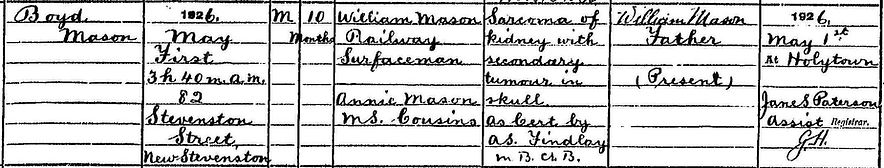 Boyd
Mason
1926.
May
First
3h 40m. a.m.
82
Stevenston
Street
New Stevenston
M
10
Months
William Mason
Railway
Surfaceman
Annie Mason
M.S. Cousins
Sarcoma of
kidney with
secondary
tumour in
skull.
As Cert by
A.S. Findlay
M.B. Ch.B.
William Mason
Father
(Present)
1926.
May 1st
At Holytown
Jane S. Paterson
Assist Registrar.
G.H.